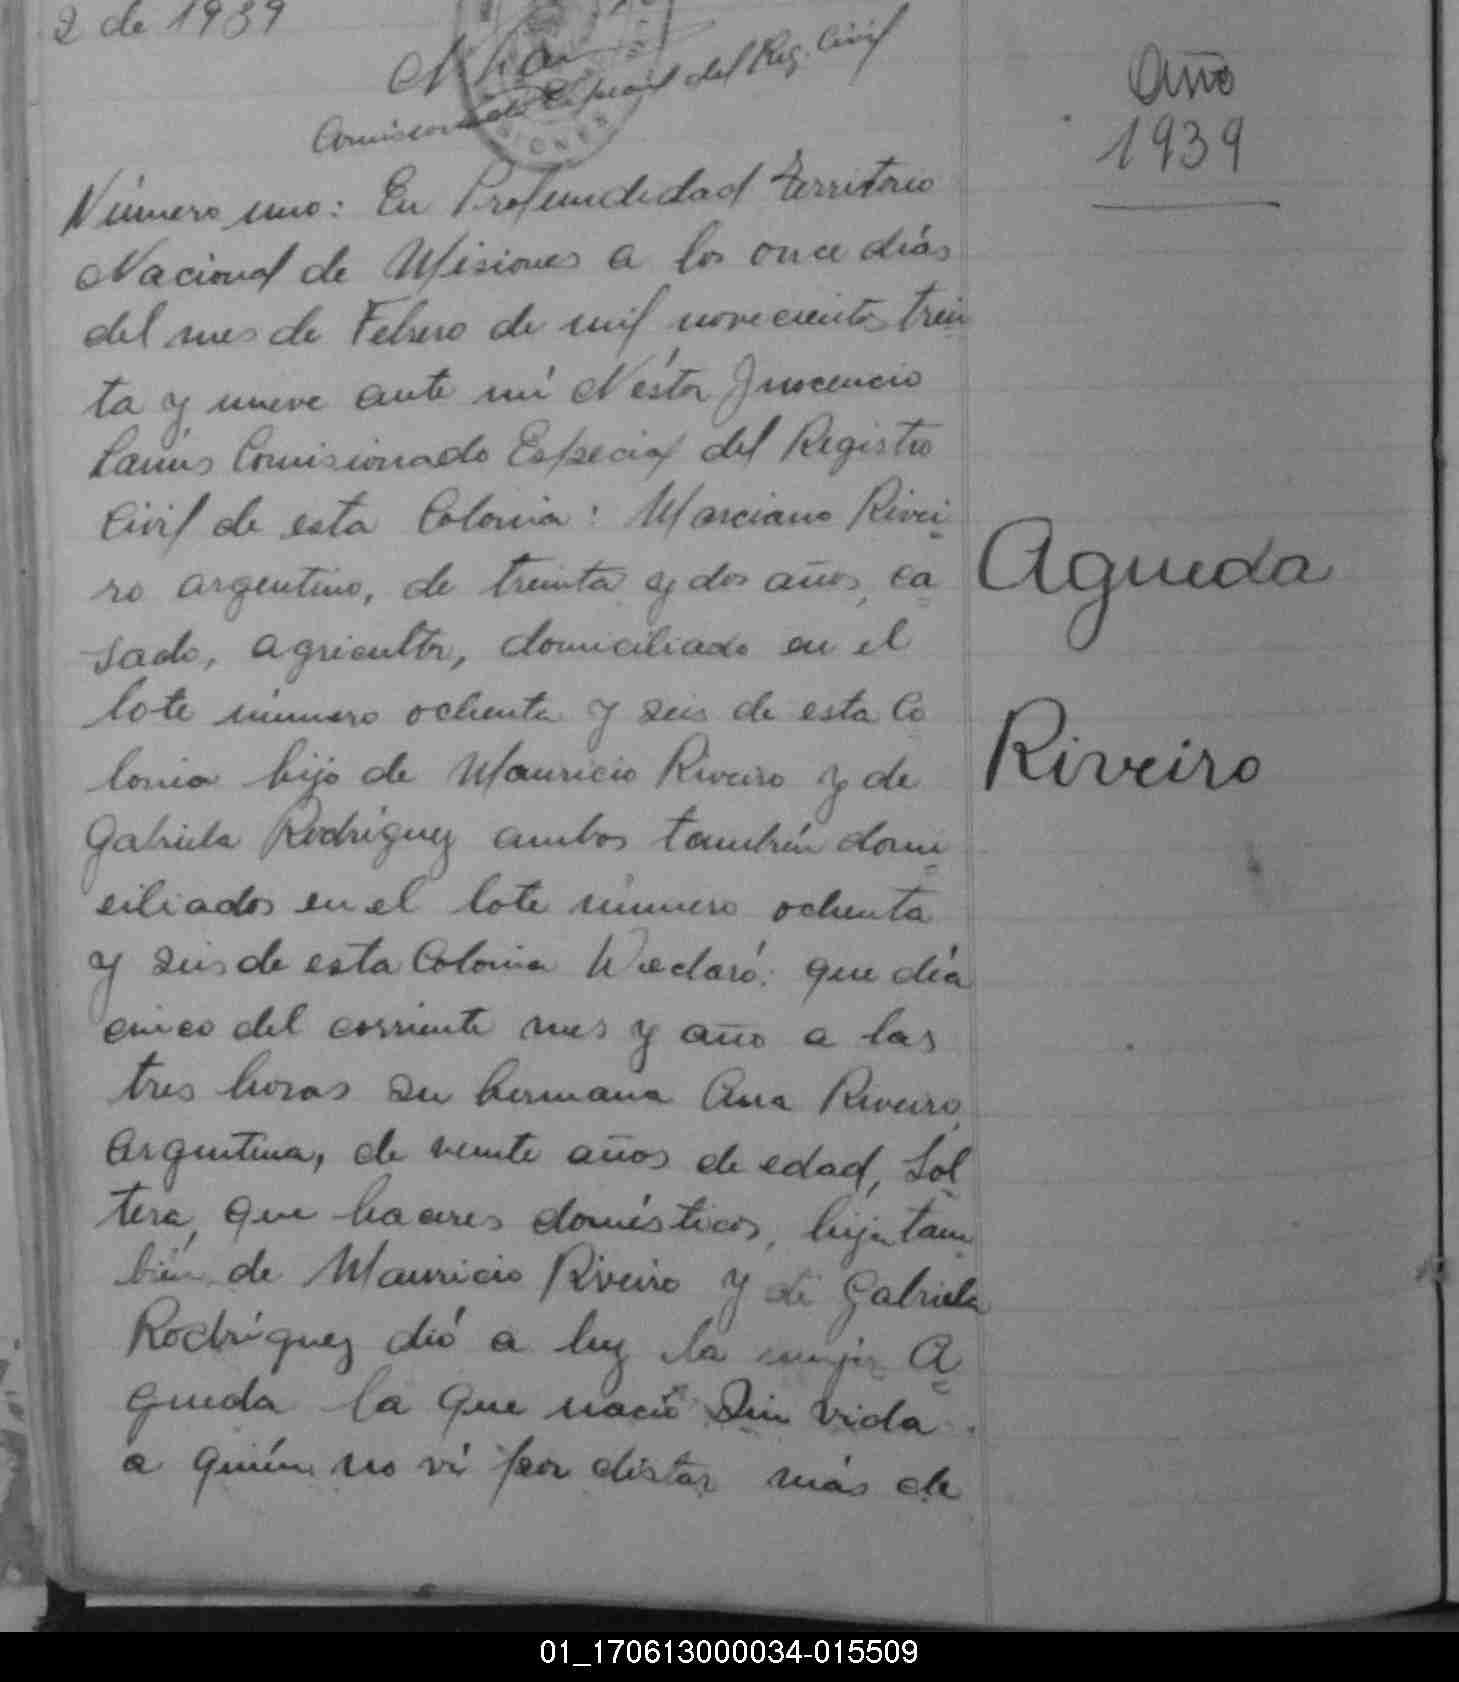 2 de 1939
Comisionado Especial del Reg. Civil
Año
1939
Número uno: En Profundidad Territorio
Nacional de Misiones a los once días
del mes de Febrero de mil novecientos trein
ta y nueve ante mí Néstor Inocencio
Lanús Comisionado Especial del Registro
Civil de esta Colonia: Marciano Rivei
ro argentino, de treinta y dos años, ca
sado, agricultor, domiciliado en el
lote número ochenta y seis de esta Co
lonia hijo de Mauricio Riveiro y de
Gabriela Rodríguez ambos también domi
ciliados en el lote número ochenta
y seis de esta Colonia declaró: que día
cinco del corriente mes y año a las
tres horas su hermana Ana Riveiro,
argentina, de veinte años de edad, Sol
tera, que haceres domésticos, hija tam
bién de Mauricio Riveiro y de Gabriela
Rodríguez dió a luz la mujer A
gueda la que nació Sin vida
a quién no ví por distar más de
Agueda
Riveiro
ONES
01_170613000034-015509